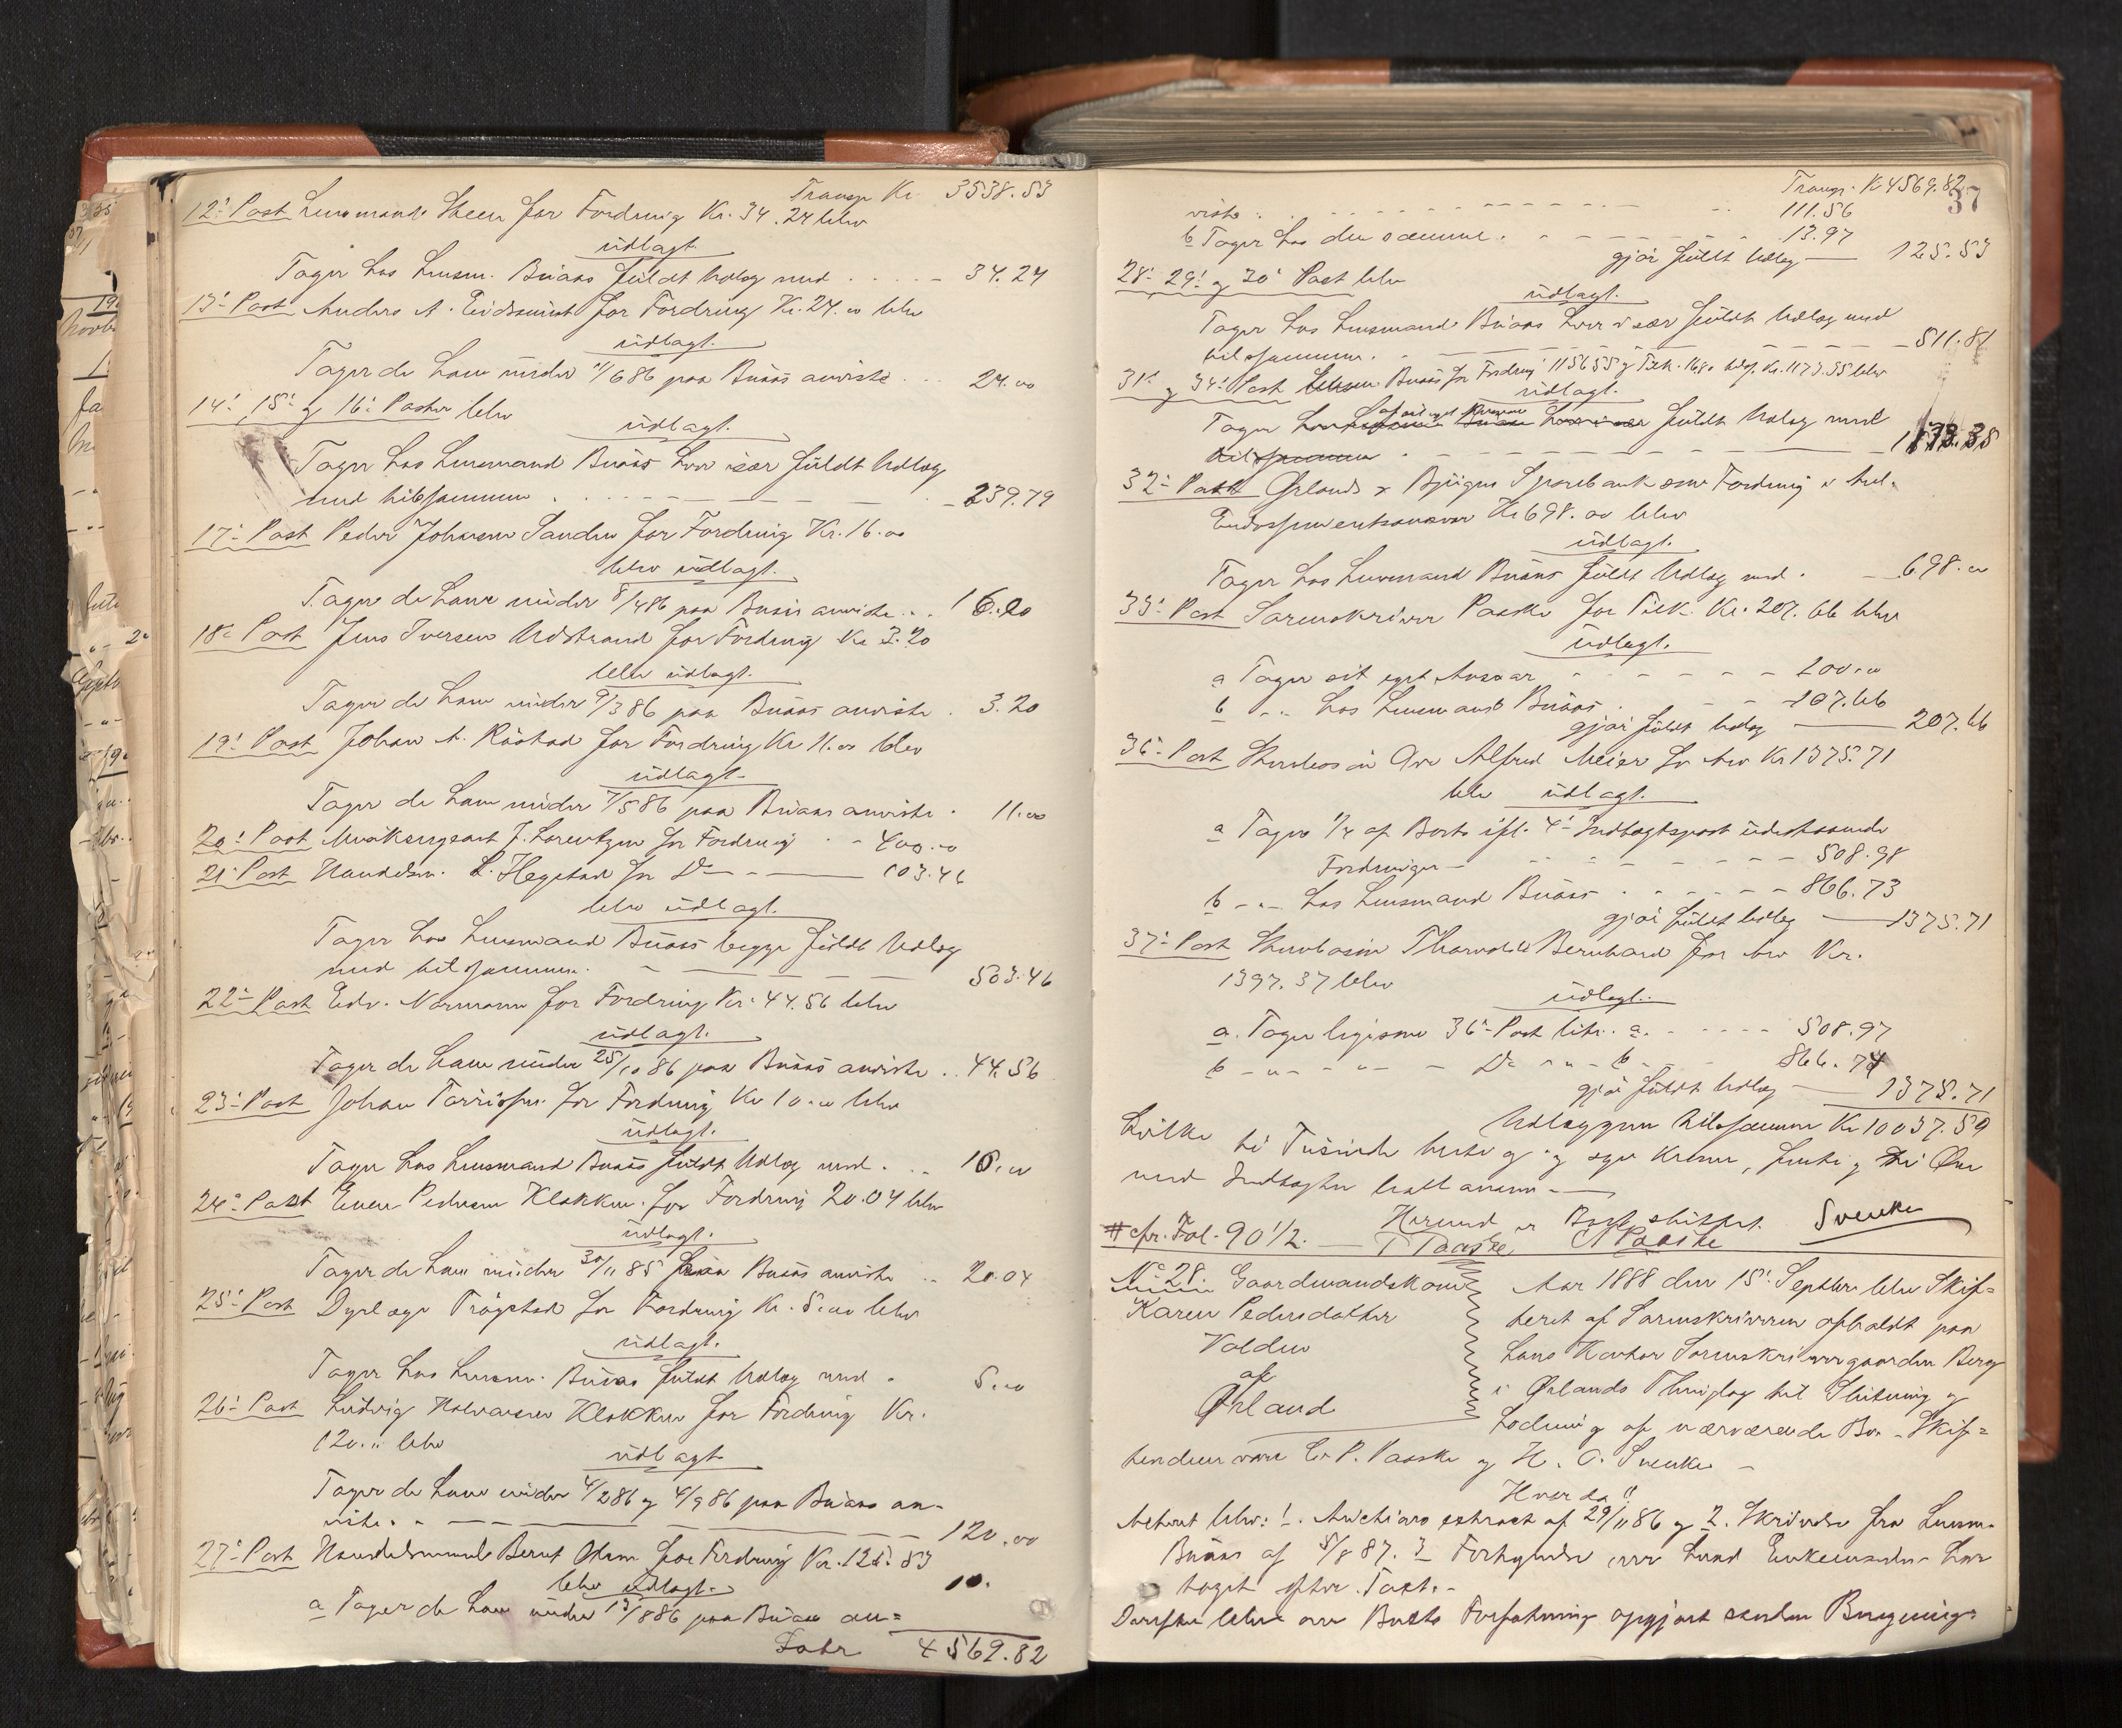 Transp Kr. 3538.53
12te Post Lensmand Steen for Fordring Kr. 34.24 blev
udlagt.
Tager hos Lensm. Buaas fuldt Udlæg med 34.24
13de Post Anders A. Eidsmint for Fordring Kr. 24.00 blev
udlagt.
Tager de ham under 1/6 86 paa Buaas anviste 24.00
14de, 15de og 16de Poster blev
udlagt.
Tager hos Lensmand Buaas hver især fuldt Udlæg
med tilsammen 239.79
17de Post Peder Johnsen Sanden for Fordring Kr. 16.00
blev udlagt.
Tager de ham under 8/4 86 paa Buaas anviste 16.00
18de Post Jens Iversen Udstrand for Fordring Kr 3.20
blev udlagt.
Tager de ham under 9/3 86 paa Buaas anviste 3.20
19de Post Johan A. Röstad for Fordring Kr 11.00 blev
udlagt.
Tager de ham under 7/5 86 paa Buaas anviste 11.00
20de Post Musiksergeant J. Lorentzen for Fordring 400.00
21de Post Handelsm. L. Hegstad for Do 103.46
blev udlagt.
Tager hos Lensmand Buaas begge fuldt Udlæg
med tilsammen 503.46
22de Post Edv. Normann for Fordring Kr. 44.56 blev
udlagt.
Tager de ham under 25/10 86 paa Buaas anviste 44.56
23de Post Johan Tørrissen for Fordring Kr 10.00 blev
udlagt.
Tager hos Lensmand Buaas fuldt Udlæg med 10.00
24de Post Even Pedersen Klakken for Fordring 20.04 blev
udlagt.
Tager de ham under 30/11 85 paa Buaas anviste 20.04
25de Post Dyrlæge Trögstad for Fordring Kr. 5.00 blev
udlagt.
Tager hos Lensm. Buaas fuldt Udlæg med 5.00
26de Post Ludvig Halvorsen Klakken for Fordring Kr.
120.00 blev
udlagt
Tager de ham under 4/2 86 og 4/9 86 paa Buaas an-
viste 120.00
27de Post Handelsmand Bernt Ohsen for Fordring Kr. 125.53
blev udlagt. 10.
a Tager de ham under 13/8 86 paa Buaas an=
Latr 4569.82
Transp. Kr 4569.82
37
viste 111.56
b Tager hos den samme 13.97
gjør fuldt Udlæg 125.53
28de 29de og 30te Post blev
udlagt.
Tager hos Lensmand Buaas hver især fuldt Udlæg med
tilsammen 511.81
31te og 34de Post Lensm. Buaas for Fordring 1156.55 og Tilk. 16.80 tils. Kr. 1173.35 blev
udlagt.
Tager af sit eget Ansvar fuldt Udlæg med
tilsammen 1173.35
32te Post Ørlands & Bjugns Sparebank som Fordring & Anl.
Endossementsansvar Kr 698.00 blev
udlagt.
Tager hos Lensmand Buaas fuldt Udlæg med 698.00
35te Post Sorenskriver Paaske for Tilk. Kr. 207.66 blev
udlagt.
a Tager sit eget Ansvar 200.00
b " hos Lensmand Buaas 207.66
gjør fuldt Udlæg 207.66
36te Post Stervbosön Ove Alfred Meier for Arv Kr 1375.71
blev udlagt.
a Tager 1/2 af Boets ifl. 4de Indtægtspost udestaaende
Fordringer 508.98
b " hos Lensmand Buaas 866.73
gjør fuldt Udlæg 1375.71
37te Post Stervbosön Thorvald Bernhard for Arv Kr.
1397.37 blev
udlagt.
a. Tager ligesom 36te Post litr. a. 508.97
b " " Do " b 866.74
gjør fuldt Udlæg 1375.71
Udlæggene tilsammen Kr 10037.59
hvilke ti Tusinde tretti og syv Kroner, femti og ni Øre
med Indtægten balancerer.
Hermed er Boet sluttet. Svenke
# cfr. Fol. 90 1/2. T Paaske, C Paaske
No 28. Gaardmandskone
Karen Pedersdatter
Valden
af
Ørland
Aar 1888 den 15de Septbr blev Skif=
teret af Sorenskriveren afholdt paa
hans Kontor Sorenskrivergaarden Berg
i Ørlands Thinglag til Slutning og
Lodning af nærværende Bo. Skif=
tevidner vare C. P. Paaske og H. O. Svenke
Hvorda!!
Aktert blev: 1. Auctions extract af 29/11 86 og 2. Skrivelse fra Lensm.
Buaas af 5/8 87. 3 Fortegnelse over hvad Enkemanden har
taget efter Taxt.
Derefter blev over Boets Forfatning opgjort saadan Beregning: